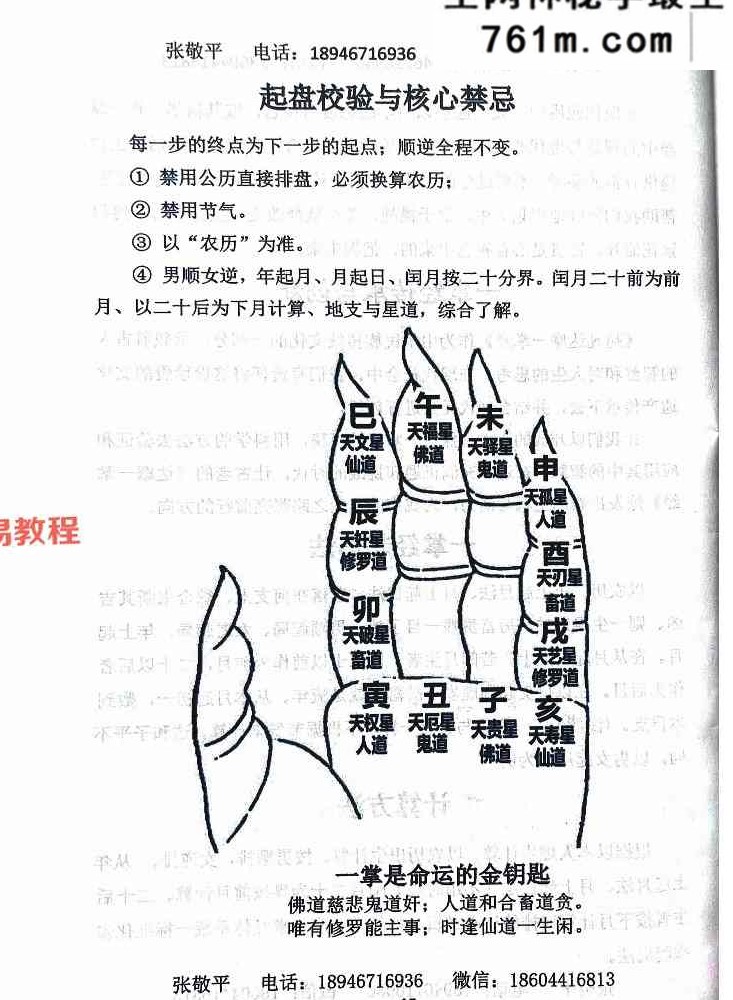 761m.com
张敬平 电话：18946716936
起盘校验与核心禁忌
每一步的终点为下一步的起点；顺逆全程不变。
① 禁用公历直接排盘，必须换算农历；
② 禁用节气。
③ 以“农历”为准。
④ 男顺女逆，年起月、月起日、闰月按二十分界。闰月二十前为前
月、以二十后为下月计算、地支与星道，综合了解。
巳
天文星
仙道
午
天福星
佛道
未
天驿星
鬼道
申
天孤星
人道
辰
天奸星
修罗道
酉
天刃星
畜道
卯
天破星
畜道
戌
天艺星
修罗道
寅
天权星
人道
丑
天厄星
鬼道
子
天贵星
佛道
亥
天寿星
仙道
易教程
一掌是命运的金钥匙
佛道慈悲鬼道奸；人道和合畜道贪。
唯有修罗能主事；时逢仙道一生闲。
张敬平 电话：18946716936 微信：18604416813